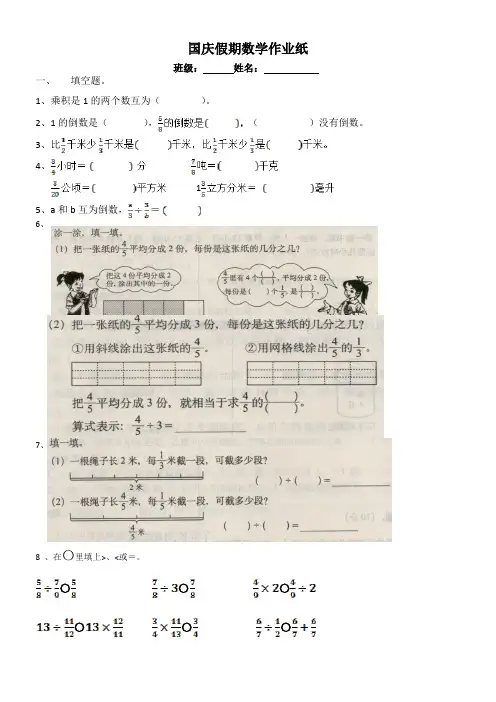 国庆假期数学作业纸
班级：______姓名：____________
一、 填空题。
1、乘积是1的两个数互为（ ）。
2、1的倒数是（ ），5/8的倒数是( )，（ ）没有倒数。
3、比1/2千米少1/3千米是( )千米，比1/2千米少1/3是( )千米。
4、3/4小时＝( )分 7/8吨＝( )千克
3/20公顷＝( )平方米 1 3/5立方分米＝( )毫升
5、a和b互为倒数，a/3÷3/b＝( )
6、
涂一涂，填一填。
(1) 把一张纸的4/5平均分成2份，每份是这张纸的几分之几?
把这4份平均分成2份，涂出其中的一份。
4/5里有4个( )/( )，平均分成2份，每份是( )个1/5，是( )/( )。
(2) 把一张纸的4/5平均分成3份，每份是这张纸的几分之几?
①用斜线涂出这张纸的4/5。 ②用网格线涂出4/5的1/3。
把4/5平均分成3份，就相当于求4/5的( )/( )。
算式表示: 4/5÷3=
7、填一填。
(1) 一根绳子长2米，每1/3米截一段，可截多少段?
2米
( )÷( )=
(2) 一根绳子长4/5米，每1/5米截一段，可截多少段?
4/5米
( )÷( )=
8 、在○里填上>、<或＝。
5/8÷7/9○5/8 7/8÷3○7/8 4/9×2○4/9÷2
13÷11/12○13×12/11 3/4×11/13○3/4 6/7÷1/2○6/7+6/7